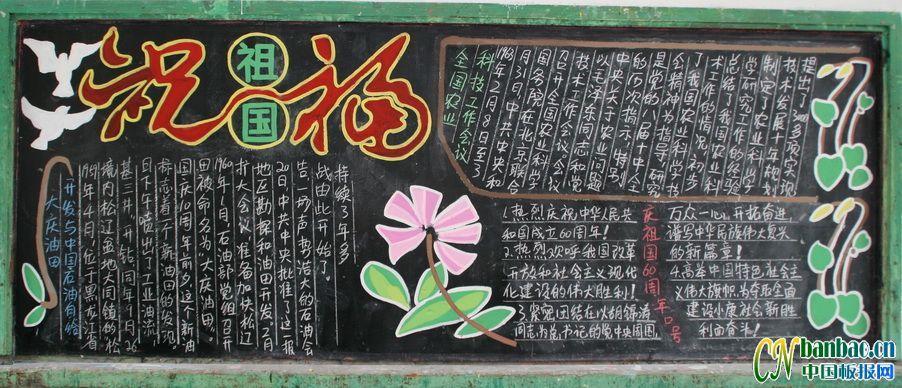 祝祖国福
全国农业
科技工作会议
1963年2月8日至3
月31日,中共中央和
国务院在北京联合
召开全国农业科学
技术工作会议。会议
以毛泽东同志和党
中央关于农业问题
的历次指示,特别
是党的八届十中全
会精神为指导,研究
了我国农业科学技
术工作的情况,初步
总结了农业科学
学研究工作的经验,
制定了农业科学
技术发展十年规划,
提出了3000多项实现
开发与中国石油有缘
大庆油田
1959年4月,位于黑龙江省
境内松辽盆地大同镇的松
基三井开钻,同年9月26
日下午喷出了工业油流,
标志着一个新油田的发现。
国庆10周年前夕,这个新油
田被命名为“大庆油田”。
1960年1月,石油部党组召开
扩大会议,准备加快松辽
地区勘探和油田开发。2月
20日,中共中央批准了这一报
告。一场声势浩大的石油会
战由此开始了。
持续了3年多
庆祝祖国60周年口号
1.热烈庆祝中华人民共
和国成立60周年!
2.热烈欢呼我国改革
开放和社会主义现代
化建设的伟大胜利!
3.紧密团结在以胡锦涛
同志为总书记的党中央周围,
万众一心,开拓奋进,
谱写中华民族伟大复兴
的新篇章!
4.高举中国特色社会主
义伟大旗帜,为夺取全面
建设小康社会新胜
利而奋斗!
CN banbao.cn
中国板报网